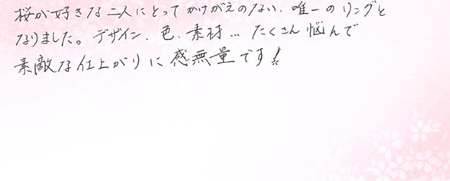 桜が好きな二人にとってかけがえのない、唯一のリングと
なりました。デザイン、色、素材…たくさん悩んで
素敵な仕上がりに感無量です!